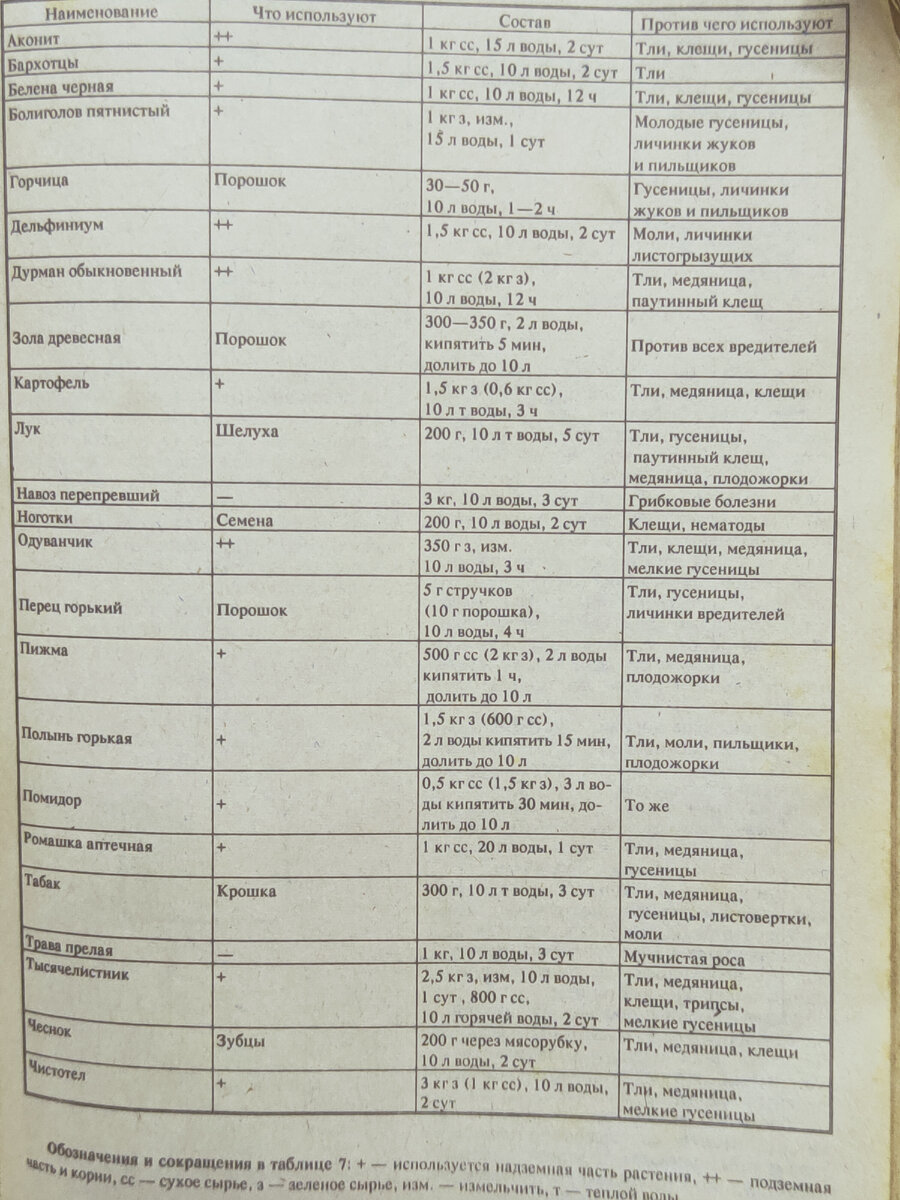 Наименование Что используют Состав Против чего используют
Аконит ++ 1 кг сс, 15 л воды, 2 сут Тли, клещи, гусеницы
Бархотцы + 1,5 кг сс, 10 л воды, 2 сут Тли
Белена черная + 1 кг сс, 10 л воды, 12 ч Тли, клещи, гусеницы
Болиголов пятнистый + 1 кг з, изм., Молодые гусеницы,
15 л воды, 1 сут личинки жуков
и пильщиков
Горчица Порошок 30—50 г, Гусеницы, личинки
10 л воды, 1—2 ч жуков и пильщиков
Дельфиниум ++ 1,5 кг сс, 10 л воды, 2 сут Моли, личинки
листогрызущих
Дурман обыкновенный ++ 1 кг сс (2 кг з), Тли, медяница,
10 л воды, 12 ч паутинный клещ
300—350 г, 2 л воды,
Зола древесная Порошок кипятить 5 мин, Против всех вредителей
долить до 10 л
Картофель + 1,5 кг з (0,6 кг сс), Тли, медяница, клещи
10 л т воды, 3 ч
Лук Шелуха 200 г, 10 л т воды, 5 сут Тли, гусеницы,
паутинный клещ,
медяница, плодожорки
Навоз перепревший — 3 кг, 10 л воды, 3 сут Грибковые болезни
Ноготки Семена 200 г, 10 л воды, 2 сут Клещи, нематоды
Одуванчик ++ 350 г з, изм. Тли, клещи, медяница,
10 л воды, 3 ч мелкие гусеницы
5 г стручков Тли, гусеницы,
Перец горький Порошок (10 г порошка), личинки вредителей
10 л воды, 4 ч
Пижма + 500 г сс (2 кг з), 2 л воды Тли, медяница,
кипятить 1 ч, плодожорки
долить до 10 л
1,5 кг з (600 г сс),
Полынь горькая + 2 л воды кипятить 15 мин, Тли, моли, пильщики,
долить до 10 л плодожорки
0,5 кг сс (1,5 кг з), 3 л во-
Помидор + ды кипятить 30 мин, до- То же
лить до 10 л
Ромашка аптечная + 1 кг сс, 20 л воды, 1 сут Тли, медяница,
гусеницы
Табак Крошка 300 г, 10 л т воды, 3 сут Тли, медяница,
гусеницы, листовертки,
моли
Трава прелая — 1 кг, 10 л воды, 3 сут Мучнистая роса
Тысячелистник + 2,5 кг з, изм, 10 л воды, Тли, медяница,
1 сут , 800 г сс, клещи, трипсы,
10 л горячей воды, 2 сут мелкие гусеницы
Чеснок Зубцы 200 г через мясорубку, Тли, медяница, клещи
10 л воды, 2 сут
Чистотел + 3 кг з (1 кг сс), 10 л воды, Тли, медяница,
2 сут мелкие гусеницы
Обозначения и сокращения в таблице 7: + — используется надземная часть растения, ++ — подземная
часть и корни, сс — сухое сырье, з — зеленое сырье, изм. — измельчить, т — теплой воды